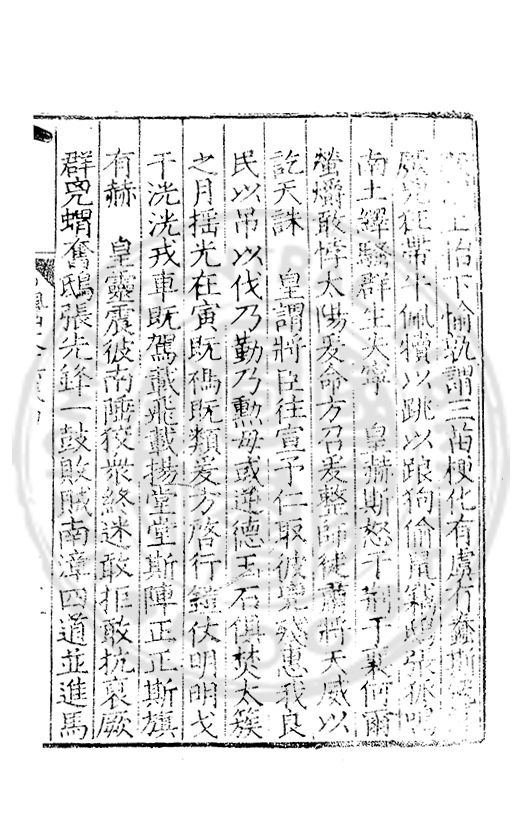 上怡下愉孰謂三苗梗化有虞有蠢斯
兇狂帶牛佩犢以跳以踉狗偷鼠竊鴟張狐鳴
南土繹騷群生失寧　皇赫斯怒于荊于襄何爾
螢爝敢恃太陽爰命方召爰整師徒肅將天威以
訖天誅　皇謂將臣往宣予仁取彼兇殘惠我良
民以吊以伐乃勤乃勳毋或逆德玉石俱焚太簇
之月揺光在寅既禡既類爰方啓行鎧仗明明戈
干洸洸戎車既駕載飛載揚堂堂斯陣正正斯旗
有赫　皇靈震彼南陲狡衆終迷敢拒敢抗裒厥
群兇蝟奮鴟張先鋒一鼓敗賊南漳四道並進馬